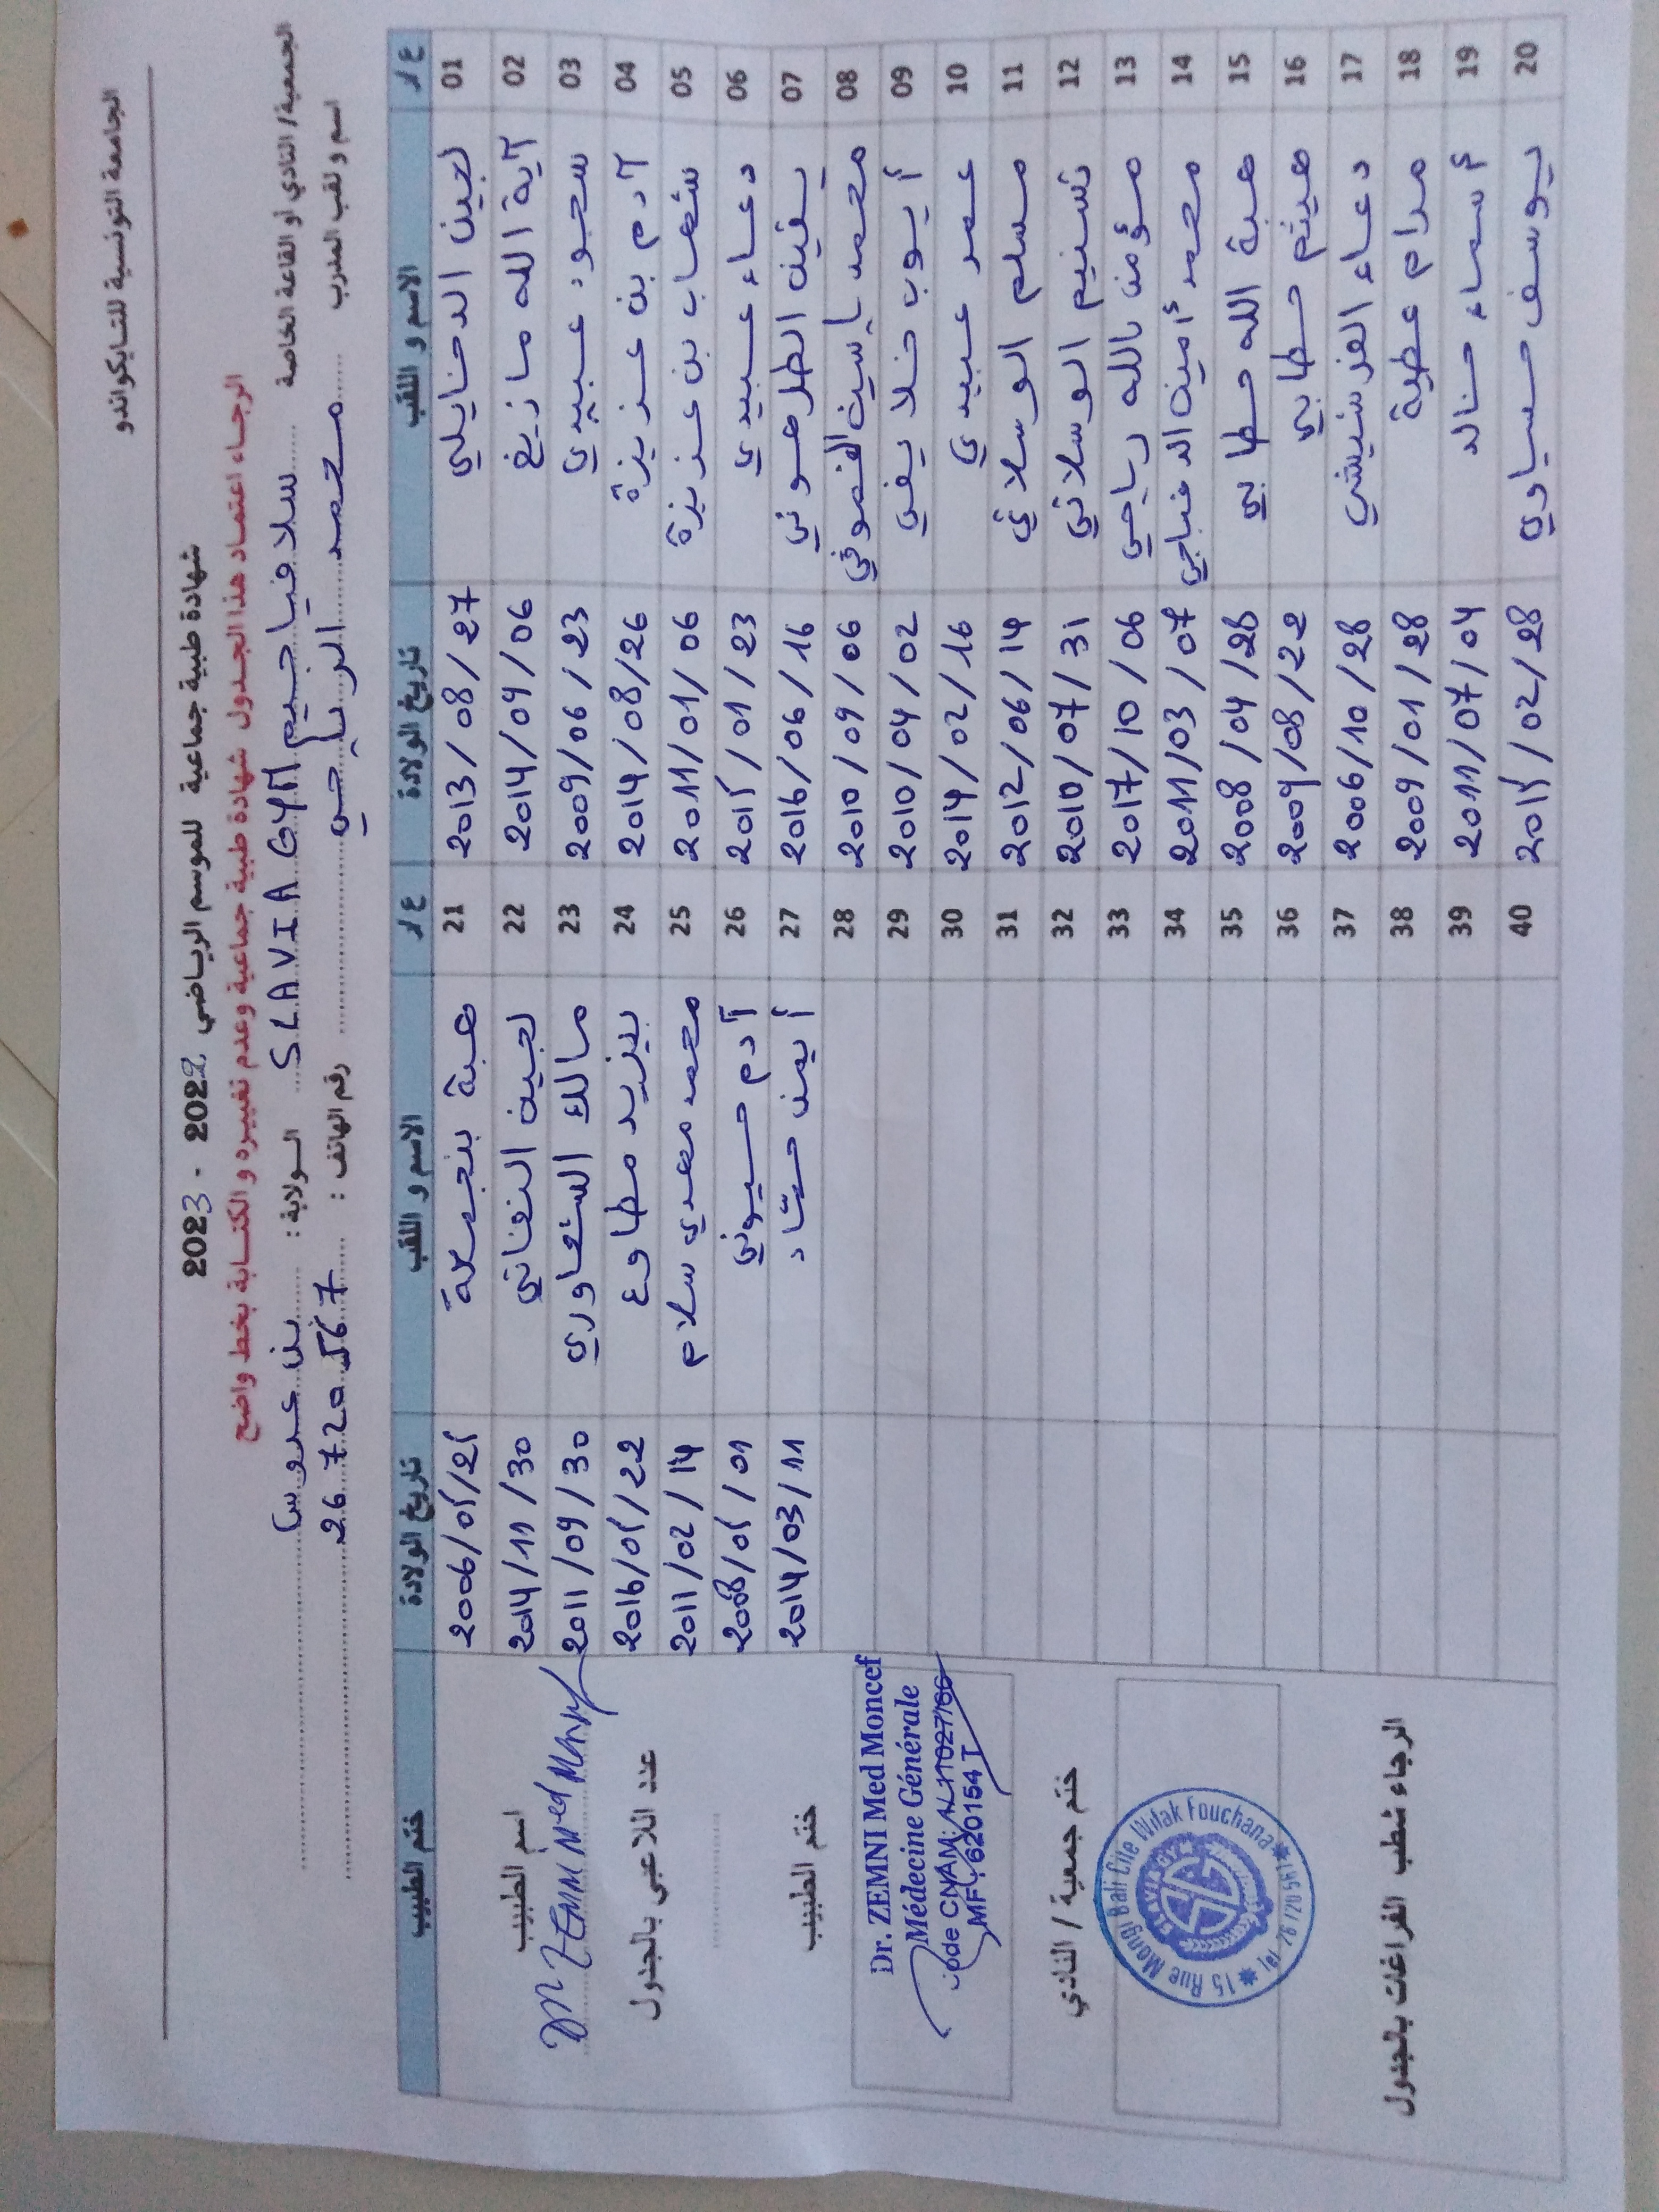 الجامعة التونسية للتايكواندو
شهادة طبية جماعية للموسم الرياضي 2022 - 2023
الرجاء اعتماد هذا الجدول شهادة طبية جماعية وعدم تغييره و الكتابة بخط واضح
الجمعية/ النادي أو القاعة الخاصة سلافيا جيم SLAVIA GYM الولاية: بن عروس
اسم و لقب المدرب محمد الرياحي رقم الهاتف : 26 720 567
ع/ر الاسم و اللقب تاريخ الولادة ع/ر الاسم و اللقب تاريخ الولادة ختم الطبيب
01 لجين الدخايلي 2013/08/27 21 هبة بنجمعة 2006/05/25
02 آية الله مازيغ 2014/09/06 22 لجين النفاتي 2014/11/30
03 سجود عبيدي 2009/06/23 23 مالك الشعاوري 2011/09/30
04 آدم بن عزيزة 2014/08/26 24 يزيد مطاوع 2016/05/22
05 شهاب بن عزيزة 2011/01/06 25 محمد مهدي سلام 2011/02/14
06 دعاء عبيدي 2015/01/23 26 آدم حسيوني 2008/05/01
07 يقين الطرهوني 2016/06/16 27 أيمن حشاد 2014/03/11
08 محمد ياسين 2010/09/06 28
09 أيوب خلايفي 2010/04/02 29
10 عمر عبيدي 2014/02/16 30
11 مسلم الوسلاتي 2012/06/14 31
12 تسنيم الوسلاتي 2010/07/31 32
13 مؤمن بالله رياحي 2017/10/06 33
14 محمد أمين الدغباجي 2011/03/07 34
15 هبة الله حطابي 2008/04/28 35
16 هيثم حطابي 2009/08/22 36
17 دعاء الفرشيشي 2006/10/28 37
18 مرام عطية 2009/01/28 38
19 أسماء خالد 2011/07/04 39
20 يوسف حسياوي 2015/02/28 40
اسم الطبيب
Dr ZEMNI Med Moncef
عدد اللاعبي بالجدول
ختم الطبيب
Dr. ZEMNI Med Moncef
Médecine Générale
code CNAM: 1/11027/66
MF: 620154 T
ختم جمعية / النادي
15 Rue Mongi Bali Cite Wifak Fouchana
Tel: 26 720 567
الرجاء شطب الفراغات بالجدول